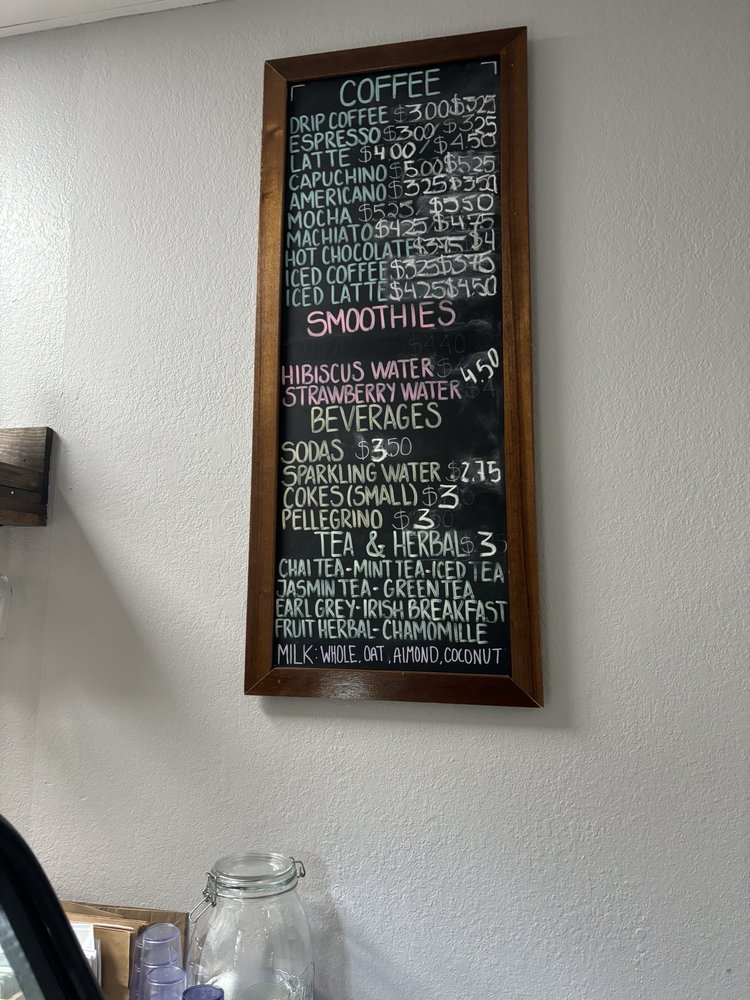 COFFEE
DRIP COFFEE $3.00 $3.25
ESPRESSO $3.00/ $3.25
LATTE $4.00 / $4.50
CAPUCHINO $5.00 $5.25
AMERICANO $3.25 $3.50
MOCHA $5.25 $5.50
MACHIATO $4.25 $4.75
HOT CHOCOLATE $3.75 $4
ICED COFFEE $3.25 $3.75
ICED LATTE $4.25 $4.50
SMOOTHIES
HIBISCUS WATER 4.50
STRAWBERRY WATER
BEVERAGES
SODAS $3.50
SPARKLING WATER $2.75
COKES (SMALL) $3
PELLEGRINO $3
TEA & HERBAL $3
CHAI TEA-MINT TEA-ICED TEA
JASMIN TEA- GREEN TEA
EARL GREY-IRISH BREAKFAST
FRUIT HERBAL- CHAMOMILLE
MILK: WHOLE, OAT, AlMOND, COCONUT